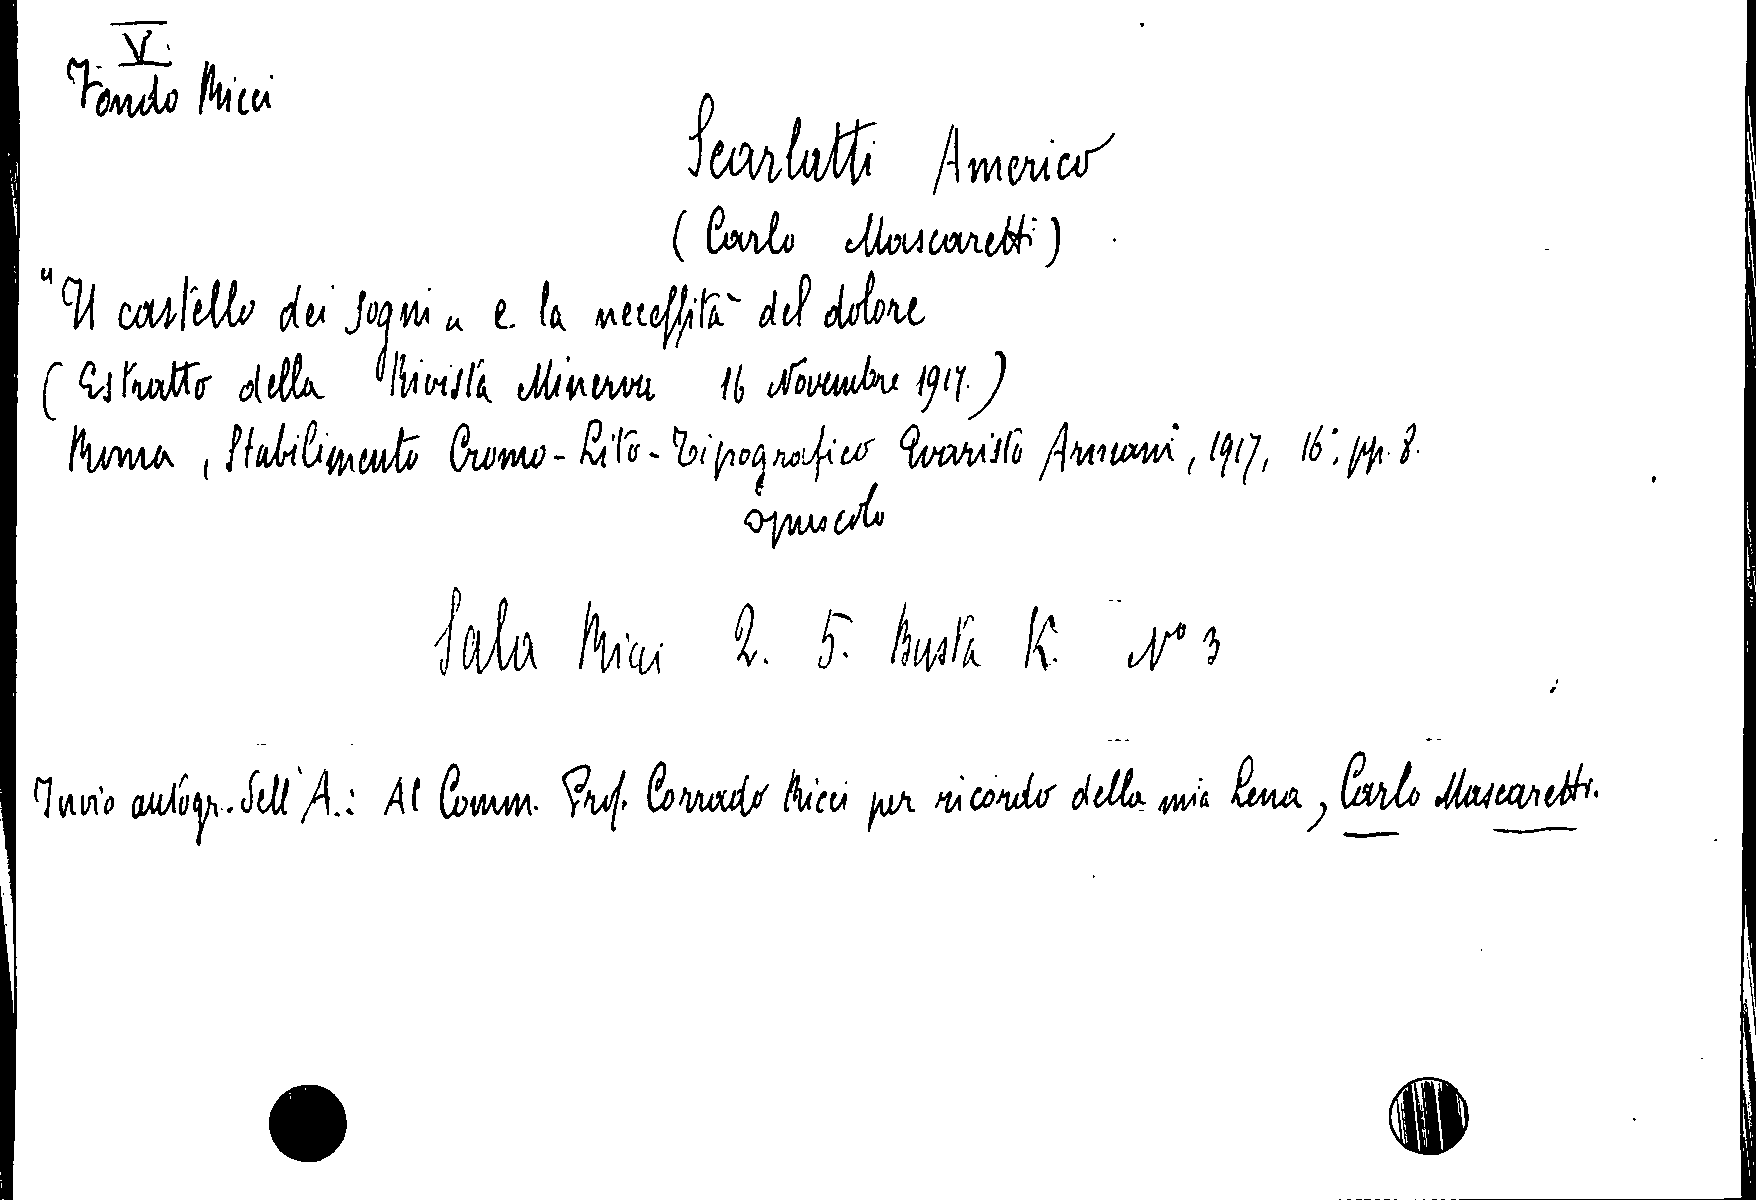 V.
Fondo Ricci
Scarlatti Americo
(Carlo Mascaretti)
"Il castello dei sogni„ e la necessità del dolore
(Estratto della Rivista Minerva 16 Novembre 1917.)
Roma, Stabilimento Cromo-Lito-Tipografico Evaristo Armani, 1917, 16°. pp. 8.
opuscolo
Sala Ricci 2. 5. Busta K. N° 3
Invio autogr. dell'A.: Al Comm. Prof. Corrado Ricci per ricordo della mia Lena, Carlo Mascaretti.